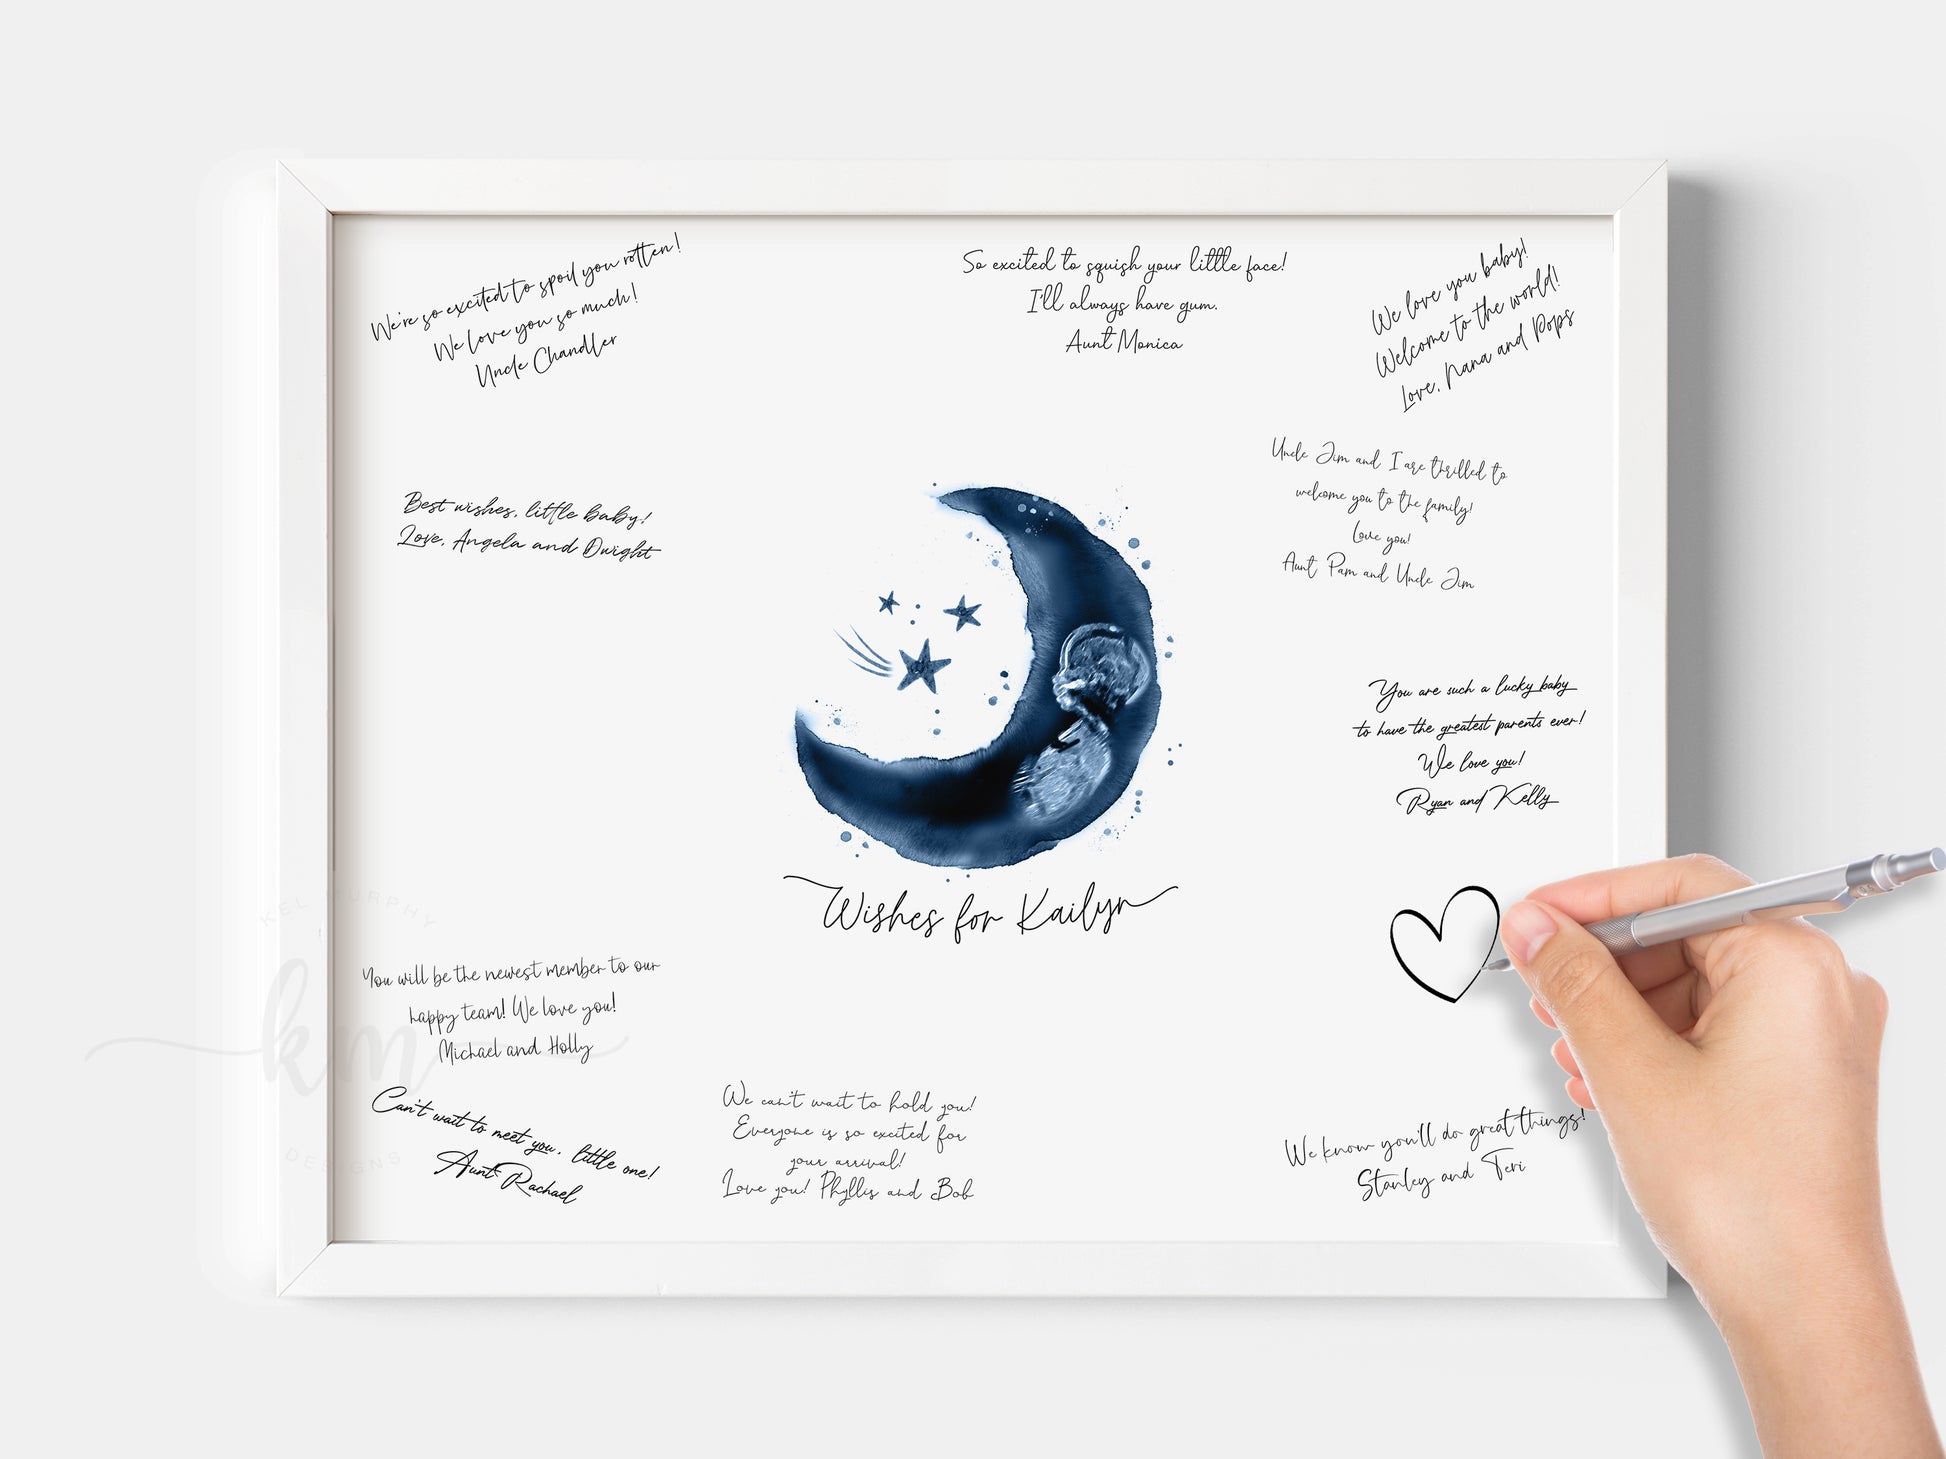 We're so excited to spoil you rotten!
We love you so much!
Uncle Chandler
So excited to squish your little face!
I'll always have gum.
Aunt Monica
We love you baby!
Welcome to the world!
Love, Nana and Pops
Best wishes, little baby!
Love, Angela and Dwight
Uncle Jim and I are thrilled to
welcome you to the family!
Love you!
Aunt Pam and Uncle Jim
You are such a lucky baby
to have the greatest parents ever!
We love you!
Ryan and Kelly
Wishes for Kailyn
KEL MURPHY
km
DESIGNS
You will be the newest member to our
happy team! We love you!
Michael and Holly
Can't wait to meet you, little one!
Aunt Rachael
We can't wait to hold you!
Everyone is so excited for
your arrival!
Love you! Phyllis and Bob
We know you'll do great things!
Stanley and Teri